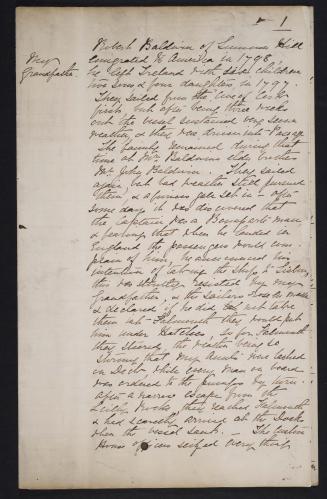 1
My
Grandfather.
Robert Baldwin of Summer Hill
emigrated to America in 1798,
he left Ireland with six children
two sons & four daughters in 1798.
They sailed from the Cove of Cork
first but after being three weeks
out the vessel sustained very severe
weather, & they was driven into Passage
The family remained during that
time at Mr Baldwins elder brother
Mr John Baldwin. They sailed
again, but bad weather still pursued
them, & a furious gale set in. After
some days it was discovered that
the Captain was a Bonaparte man
& fearing that when he landed in
England the passengers would com-
plain of him, he announced his
intention of taking the Ship to Lisbon,
this was strongly resisted by my
Grandfather, & the Sailors
& declared, if he did not take
them into Falmouth they would put
him under Hatches. So for Falmouth
they steered, the weather being so
strong that my Aunts were lashed
in Deck while every man on board
was ordered to the pumps by turns.
After a narrow escape from the
Scilly Rocks they reached Falmouth
& had scarcely arrived at the Dock
when the vessel sank. — The Custom
House officers seized every thing